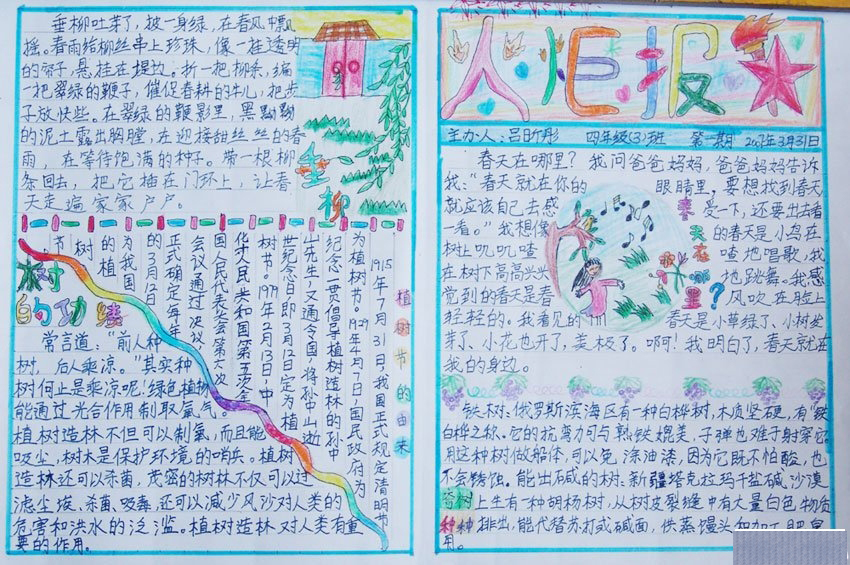 垂柳吐芽了，披一身绿，在春风中飘
摇。春雨给柳丝串上珍珠，像一挂透明
的帘子，悬挂在堤边。折一把柳条，编
一把翠绿的鞭子，催促春耕的牛儿，把步
子放快些。在翠绿的鞭影里，黑黝黝
的泥土露出胸膛，在迎接甜丝丝的春
雨，在等待饱满的种子。带一根柳
条回去，把它插在门环上，让春
天走遍家家户户。
垂柳
植树节的由来
1915年7月31日，我国正式规定清明节
为植树节。1929年4月7日，国民政府为
纪念一贯倡导植树造林的孙中
山先生，又通令全国，将孙中山逝
世纪念日即3月12日定为植
树节。1979年2月13日，中
华人民共和国第五次全
国人民代表委会第六次
会议通过决议，
正式确定每年
的3月12日
为我国
的植
树
节
树的功绩
常言道：“前人种
树，后人乘凉。”其实种
树何止是乘凉呢！绿色植物
能通过光合作用制取氧气。
植树造林不但可以制氧，而且能
吸尘，树木是保护环境的哨兵。植树
造林还可以杀菌。茂密的树林不仅可以过
滤尘埃、杀菌、吸毒，还可以减少风沙对人类的
危害和洪水的泛滥。植树造林对人类有重
要的作用。
火炬报
主办人：吕昕彤 四年级(3)班 第一期 2007年3月31日
春天在哪里？
春天在哪里？我问爸爸妈妈，爸爸妈妈告诉
我：“春天就在你的眼睛里。要想找到春天
就应该自己去感受一下，还要出去看
一看。”我想像的春天是小鸟在
树上叽叽喳喳地唱歌，我
在树下高高兴兴地跳舞。我感
觉到的春天是春风吹在脸上
轻轻的。我看见的春天是小草绿了、小树发
芽了、小花也开了，美极了。啊！我明白了，春天就在
我的身边。
奇树种种
铁树：俄罗斯滨海区有一种白桦树，木质坚硬，有“铁
白桦之称。它的抗弯力可与熟铁媲美，子弹也难于射穿它。
用这种树做船体，可以免涂油漆，因为它既不怕酸，也
不会锈蚀。能出碱的树：新疆塔克拉玛干盐碱沙漠
上生有一种胡杨树，从树皮裂缝中有大量白色物质
排出，能代替苏打或碱面，供蒸馒头和加工肥皂
用。